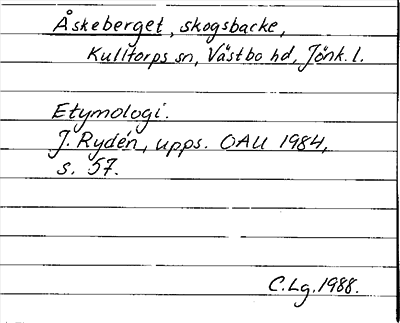 Åskeberget, skogsbacke,
Kulltorps sn, Västbo hd, Jönk. l.
Etymologi.
J. Rydén, upps. OAU 1984,
s. 57.
C.Lg. 1988.